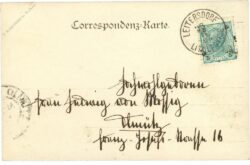 Correspondenz-Karte.
LEITERSDORF
Hochwohlgeboren
Frau Ludwig von
Olmütz
Franz Josefs-Strasse 16